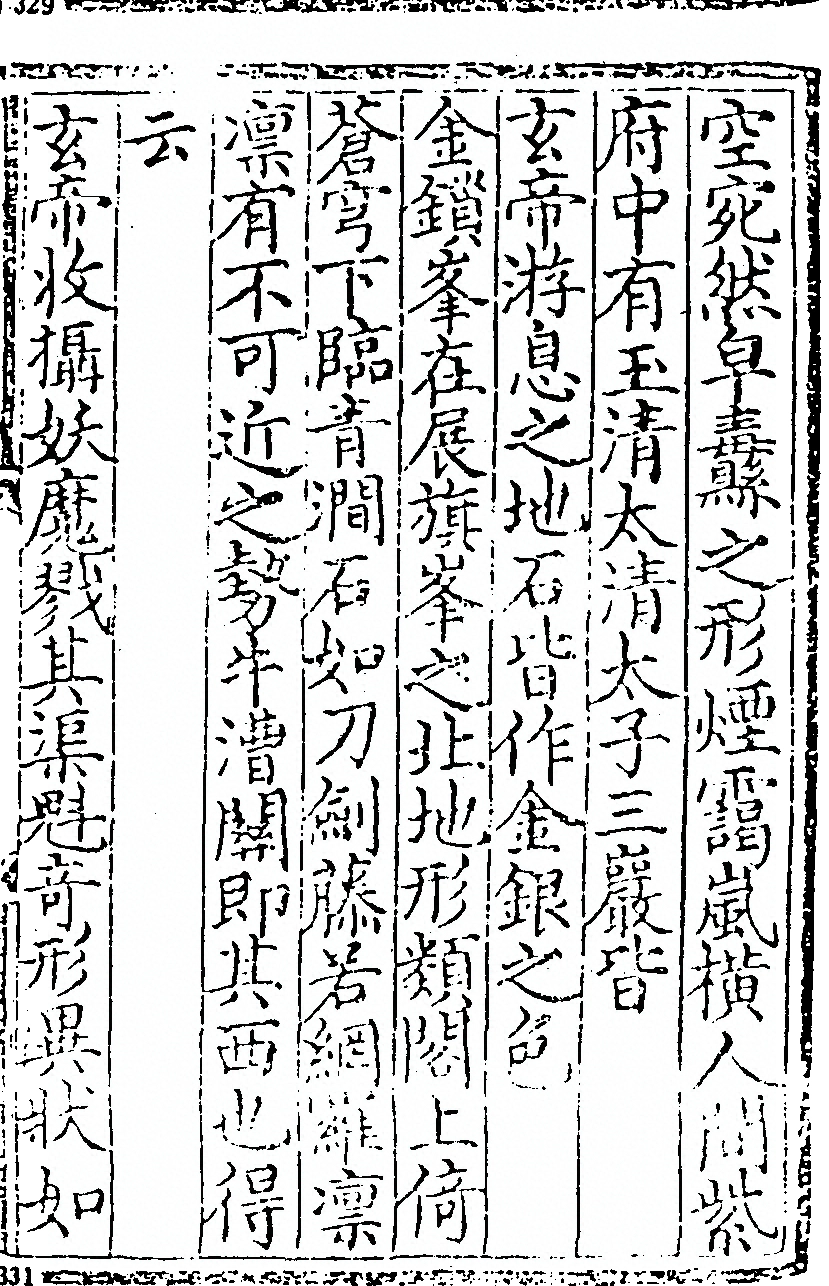 329
空宛然皁纛之形煙靄嵐橫人間紫
府中有玉清太清太子三巖皆
玄帝游息之地石皆作金銀之色
金鎖峯在展旗峯之北地形類閣上倚
蒼穹下臨青澗石如刀劍藤若網羅凛
凛有不可近之勢牛漕關即其西也得
云
玄帝收攝妖魔戮其渠魁奇形異狀如
331